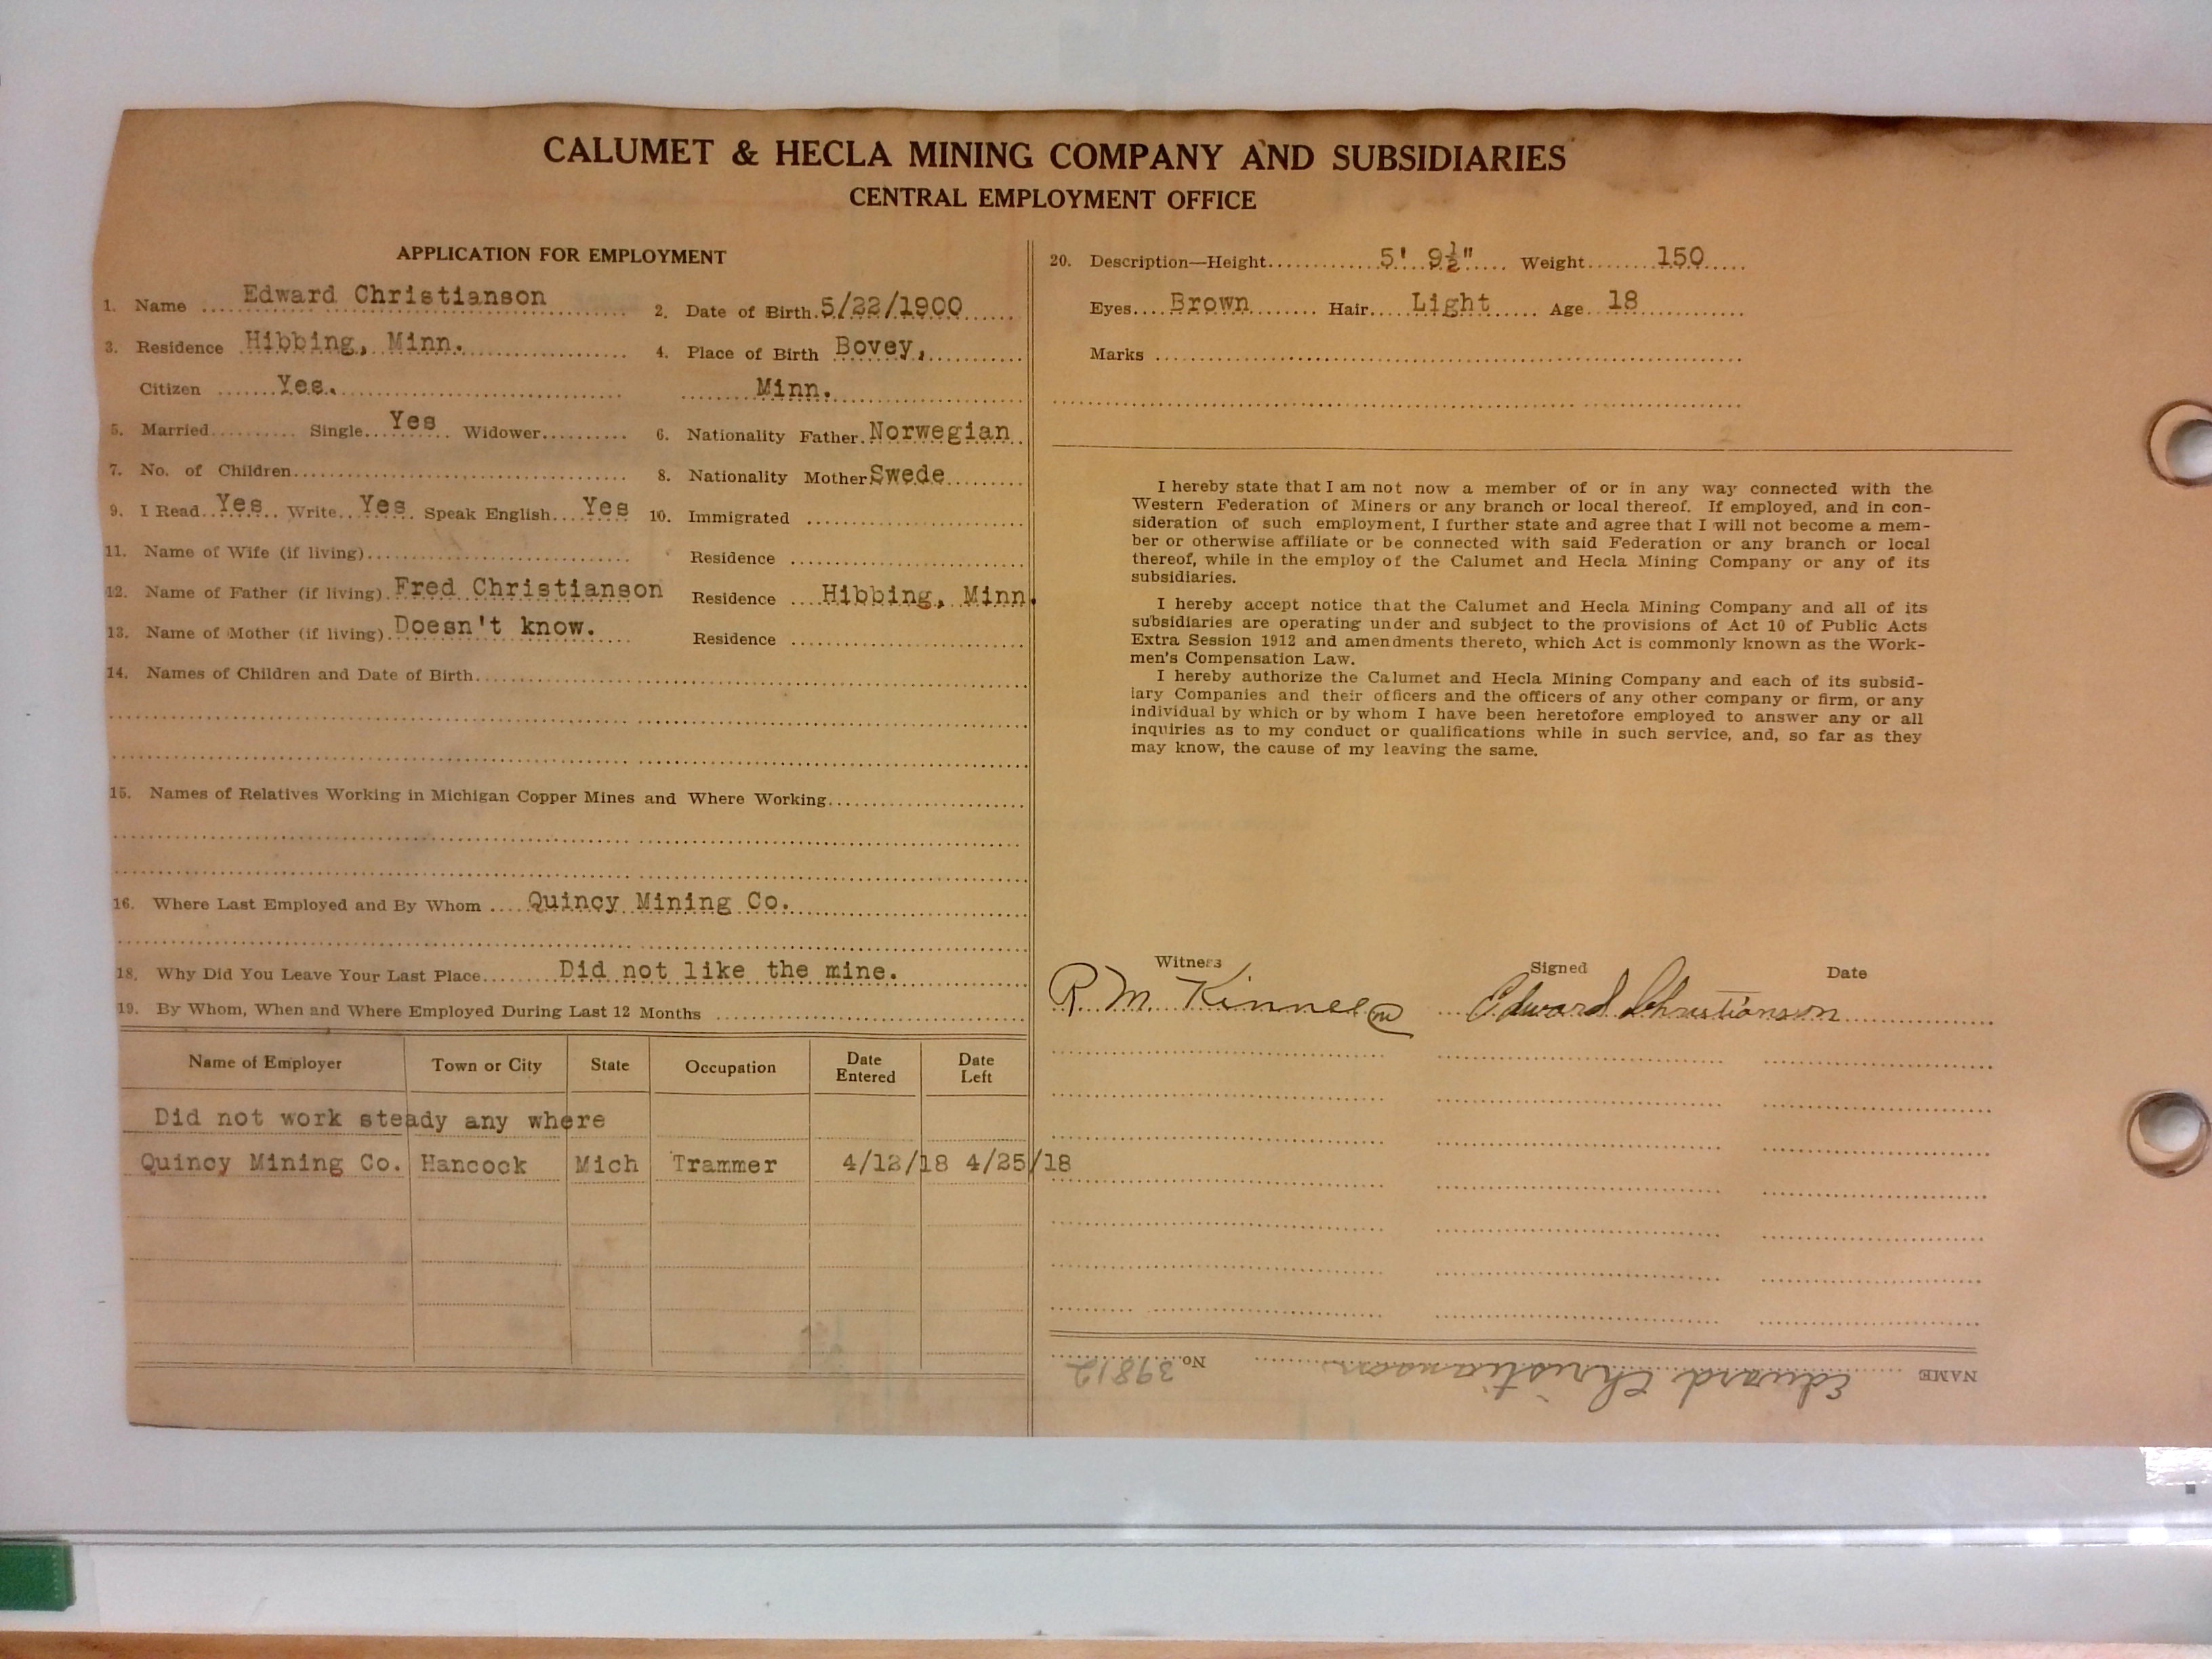 CALUMET & HECLA MINING COMPANY AND SUBSIDIARIES
CENTRAL EMPLOYMENT OFFICE
APPLICATION FOR EMPLOYMENT
1. Name Edward Christianson 2. Date of Birth 5/22/1900
3. Residence Hibbing, Minn. 4. Place of Birth Bovey,
Citizen Yes. Minn.
5. Married Single Yes Widower 6. Nationality Father Norwegian
7. No. of Children 8. Nationality Mother Swede
9. I Read Yes Write Yes Speak English Yes 10. Immigrated
11. Name of Wife (if living) Residence
12. Name of Father (if living) Fred Christianson Residence Hibbing, Minn.
13. Name of Mother (if living) Doesn't know. Residence
14. Names of Children and Date of Birth
15. Names of Relatives Working in Michigan Copper Mines and Where Working
16. Where Last Employed and By Whom Quincy Mining Co.
18. Why Did You Leave Your Last Place Did not like the mine.
19. By Whom, When and Where Employed During Last 12 Months
Name of Employer Town or City State Occupation Date Entered Date Left
Did not work steady any where
Quincy Mining Co. Hancock Mich Trammer 4/12/18 4/25/18
20. Description—Height 5' 9½" Weight 150
Eyes Brown Hair Light Age 18
Marks
I hereby state that I am not now a member of or in any way connected with the
Western Federation of Miners or any branch or local thereof. If employed, and in con-
sideration of such employment, I further state and agree that I will not become a mem-
ber or otherwise affiliate or be connected with said Federation or any branch or local
thereof, while in the employ of the Calumet and Hecla Mining Company or any of its
subsidiaries.
I hereby accept notice that the Calumet and Hecla Mining Company and all of its
subsidiaries are operating under and subject to the provisions of Act 10 of Public Acts
Extra Session 1912 and amendments thereto, which Act is commonly known as the Work-
men's Compensation Law.
I hereby authorize the Calumet and Hecla Mining Company and each of its subsid-
iary Companies and their officers and the officers of any other company or firm, or any
individual by which or by whom I have been heretofore employed to answer any or all
inquiries as to my conduct or qualifications while in such service, and, so far as they
may know, the cause of my leaving the same.
Witness Signed Date
R. M. Edward Christianson
NAME Edward Christianson No. 39812